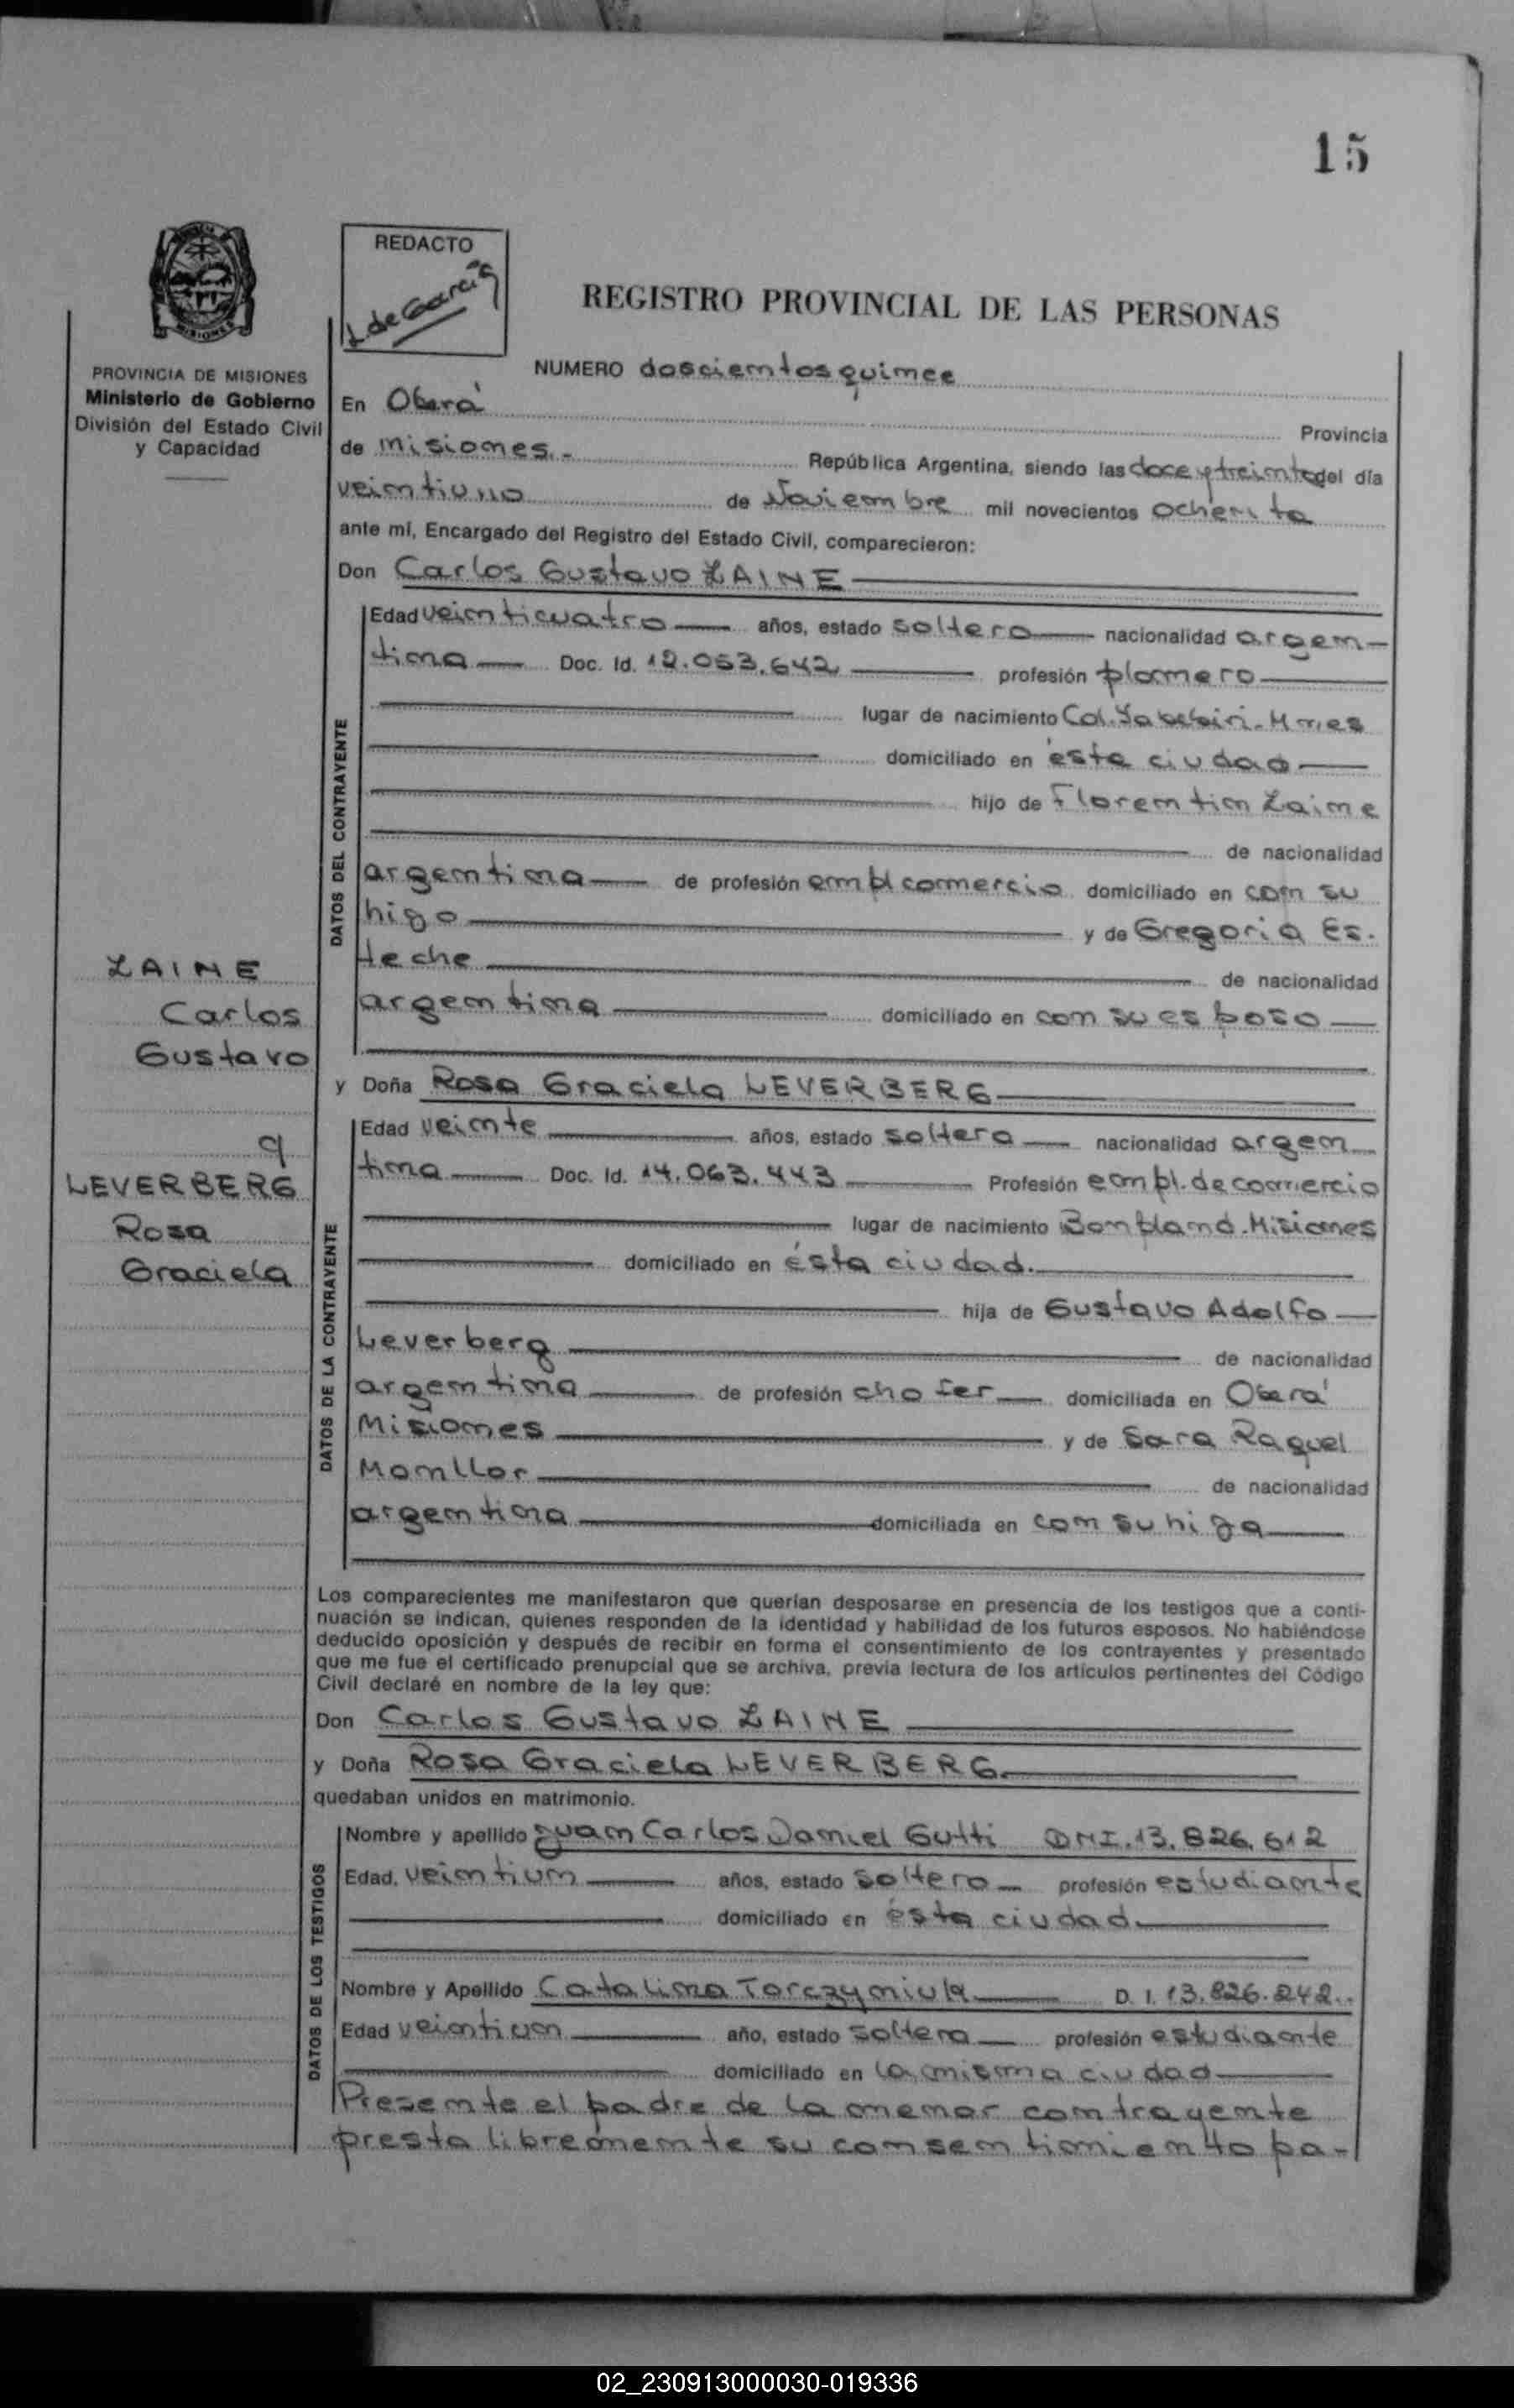 15
REDACTO
L de Garcia
REGISTRO PROVINCIAL DE LAS PERSONAS
MISIONES
PROVINCIA DE MISIONES
Ministerio de Gobierno
División del Estado Civil
y Capacidad
NUMERO doscientos quince
En Oberá
Provincia
de Misiones.- República Argentina, siendo las doce y treinta del día
veintiuno de Noviembre mil novecientos ochenta
ante mí, Encargado del Registro del Estado Civil, comparecieron:
Don Carlos Gustavo ZAINE
DATOS DEL CONTRAYENTE
Edad veinticuatro años, estado soltero nacionalidad argen-
tina Doc. Id. 12.053.642 profesión plomero
lugar de nacimiento Col. Yabebiri-Mnes
domiciliado en ésta ciudad
hijo de Florentin Zaine
de nacionalidad
argentina de profesión empl comercio domiciliado en con su
higo y de Gregoria Es-
teche de nacionalidad
argentina domiciliado en con su esposo
ZAINE
Carlos
Gustavo
y
LEVERBERG
Rosa
Graciela
y Doña Rosa Graciela LEVERBERG
DATOS DE LA CONTRAYENTE
Edad veinte años, estado soltera nacionalidad argen
tina Doc. Id. 14.063.443 Profesión empl. de comercio
lugar de nacimiento Bompland-Misiones
domiciliado en ésta ciudad.
hija de Gustavo Adolfo
Leverberg de nacionalidad
argentina de profesión chofer domiciliada en Oberá
Misiones y de Sara Raquel
Monllor de nacionalidad
argentina domiciliada en con su higa
Los comparecientes me manifestaron que querían desposarse en presencia de los testigos que a conti-
nuación se indican, quienes responden de la identidad y habilidad de los futuros esposos. No habiéndose
deducido oposición y después de recibir en forma el consentimiento de los contrayentes y presentado
que me fue el certificado prenupcial que se archiva, previa lectura de los artículos pertinentes del Código
Civil declaré en nombre de la ley que:
Don Carlos Gustavo ZAINE
y Doña Rosa Graciela LEVERBERG
quedaban unidos en matrimonio.
DATOS DE LOS TESTIGOS
Nombre y apellido Juan Carlos Daniel Gutti DNI.13.826.612
Edad, veintiun años, estado soltero profesión estudiante
domiciliado en ésta ciudad.
Nombre y Apellido Catalina Torczyniuk D. I. 13.826.242.
Edad veintiun año, estado soltera profesión estudiante
domiciliado en la misma ciudad
Presente el padre de la menor contrayente
presta libremente su consentimiento pa-
02_230913000030-019336